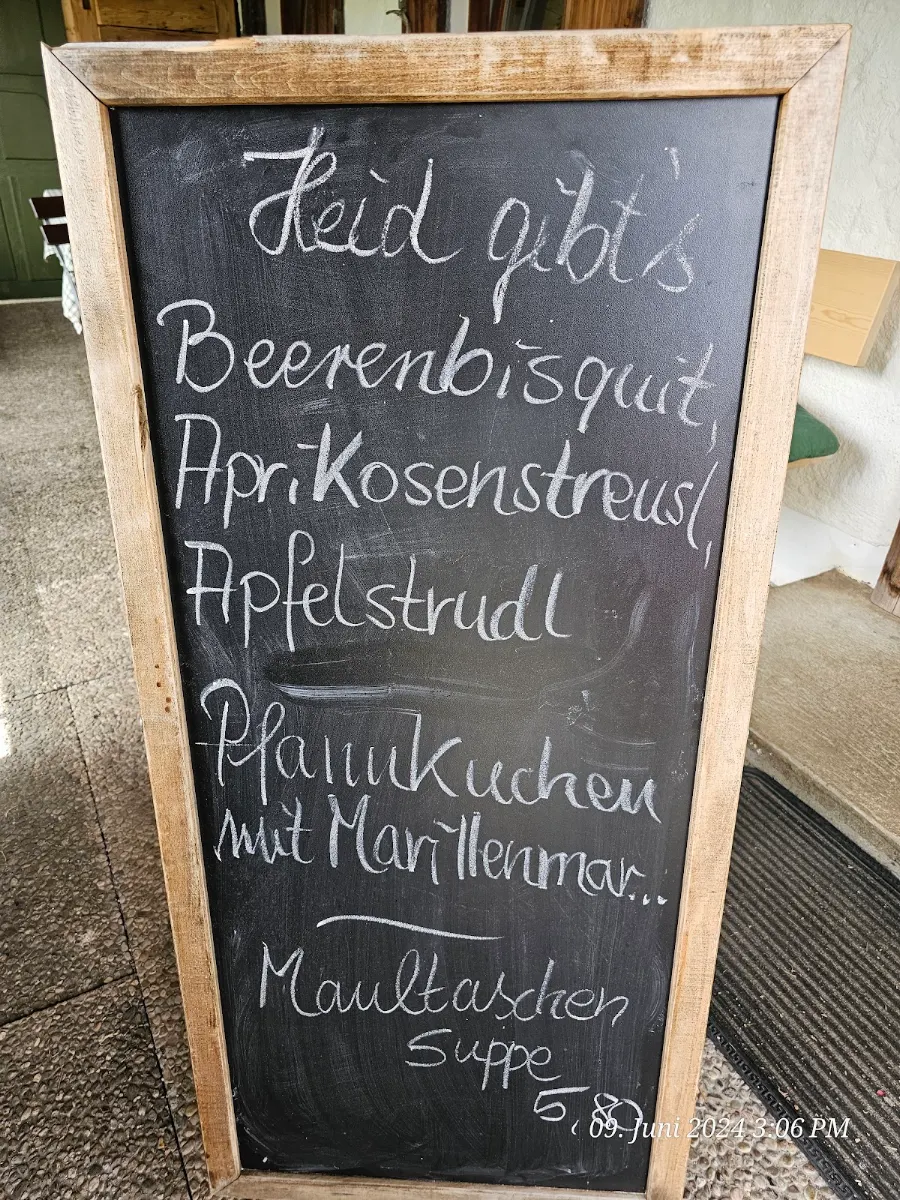 Heid gibt's
Beerenbisquit,
Aprikosenstreusl,
Apfelstrudl
Pfannkuchen
mit Marillenmar...
Maultaschen
Suppe
5,80
09. Juni 2024 3:06 PM